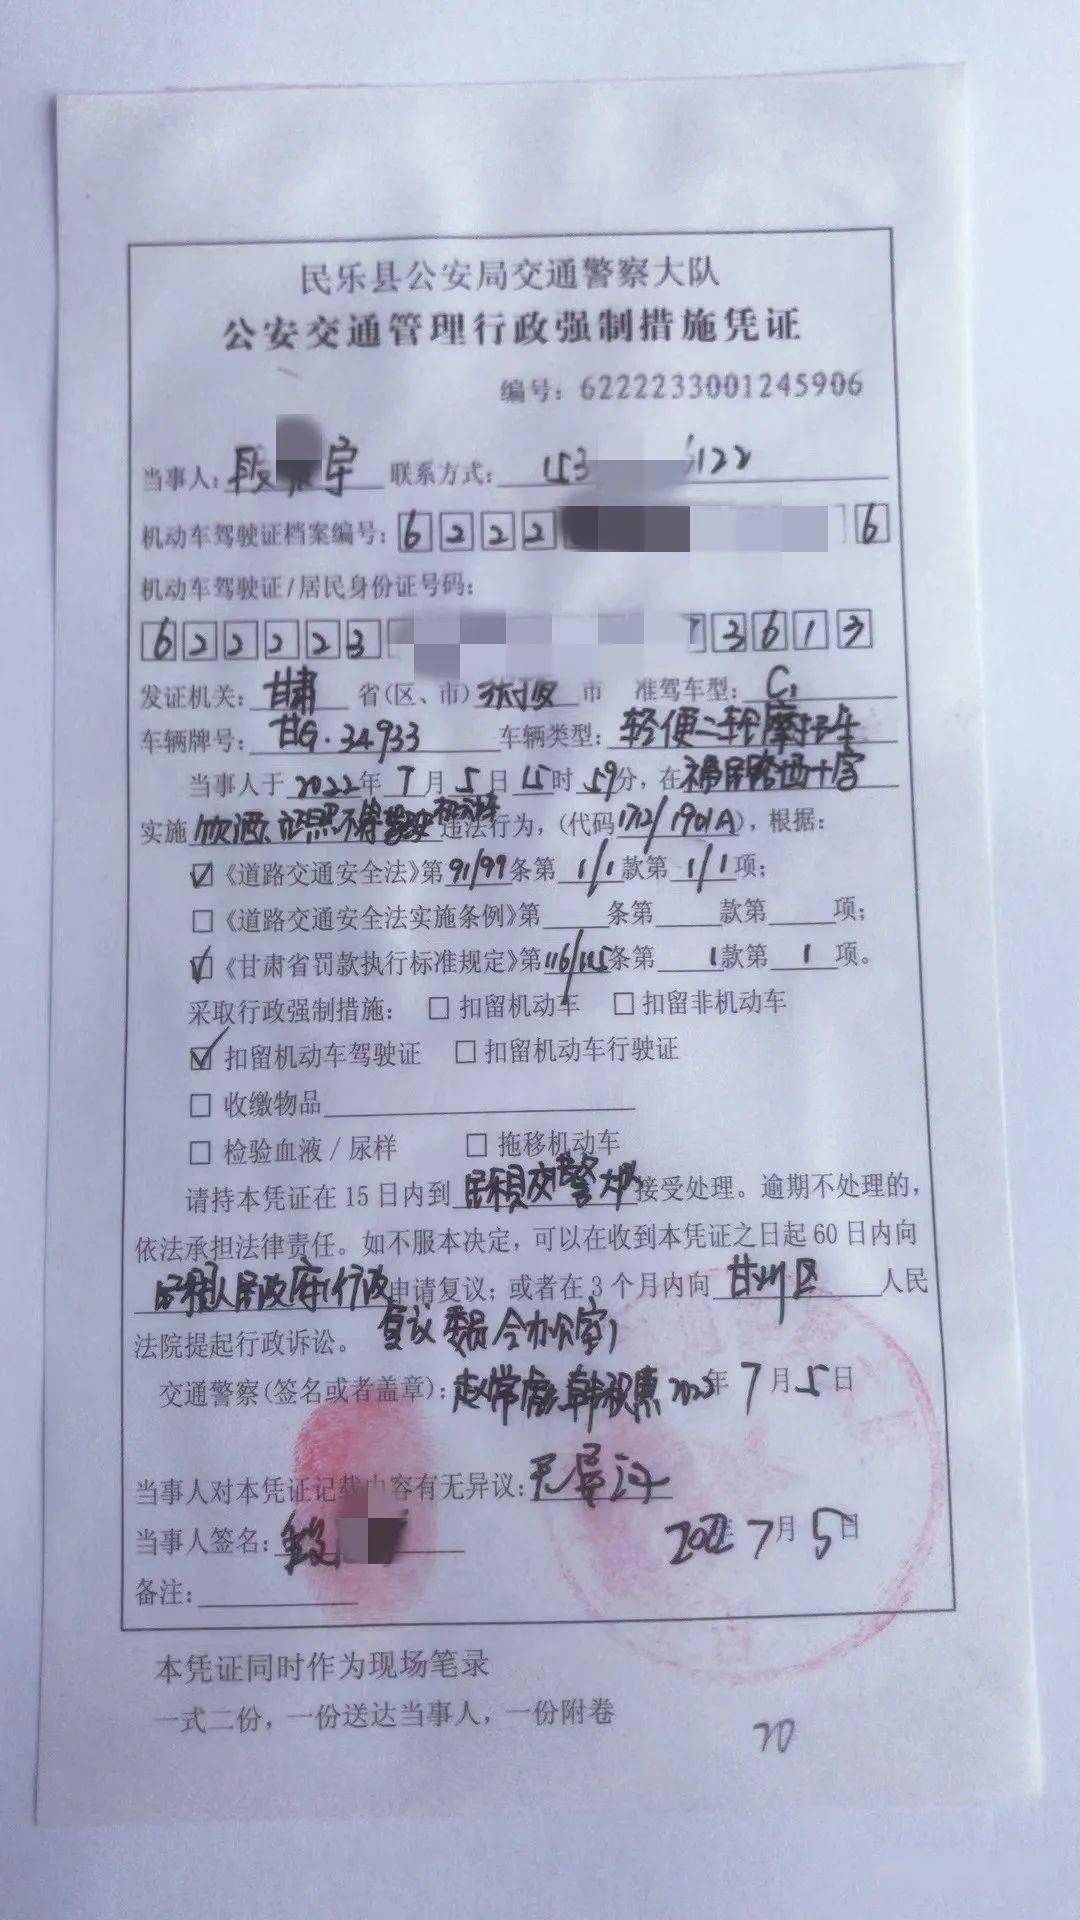 民乐县公安局交通警察大队
公安交通管理行政强制措施凭证
编号：6222233001245906
当事人：段 宇 联系方式：153 6122
机动车驾驶证档案编号：6222 6
机动车驾驶证/居民身份证号码：
622223 3613
发证机关：甘肃省(区、市)张掖市 准驾车型：C1
车辆牌号：甘G·34933 车辆类型：轻便二轮摩托车
当事人于2022年7月5日15时59分，在 路西十字
实施饮酒、证照不符驾驶机动车违法行为，(代码1712/1901A)，根据：
☑《道路交通安全法》第91/99条第1/1款第1/1项；
□《道路交通安全法实施条例》第 条第 款第 项；
☑《甘肃省罚款执行标准规定》第116/115条第1款第1项。
采取行政强制措施：□扣留机动车 □扣留非机动车
☑扣留机动车驾驶证 □扣留机动车行驶证
□收缴物品
□检验血液/尿样 □拖移机动车
请持本凭证在15日内到民乐县交警大队接受处理。逾期不处理的，
依法承担法律责任。如不服本决定，可以在收到本凭证之日起60日内向
民乐县人民政府(行政申请复议；或者在3个月内向甘州区人民
法院提起行政诉讼。 复议委员会办公室)
交通警察(签名或者盖章)： 2022年7月5日
当事人对本凭证记载内容有无异议：无异议
当事人签名：段 2022年7月5日
备注：
本凭证同时作为现场笔录
一式二份，一份送达当事人，一份附卷
20